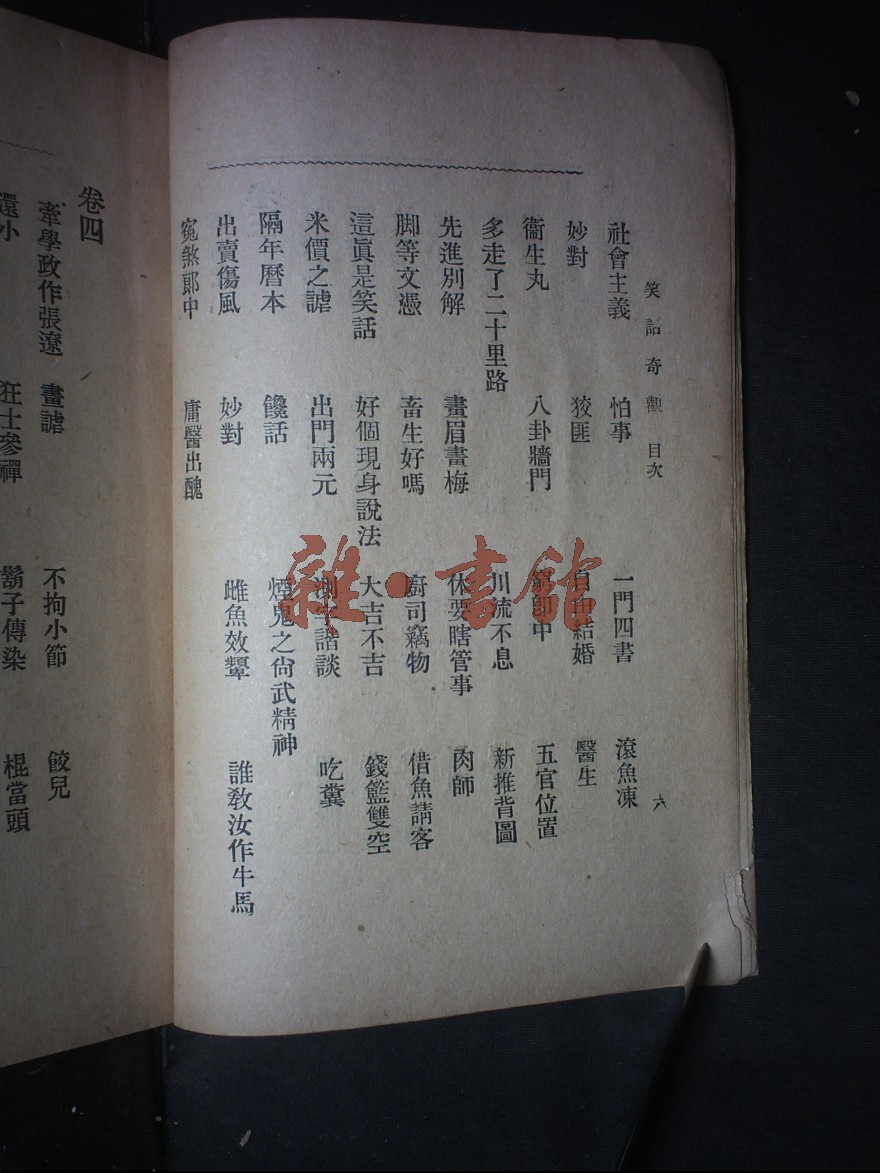 笑話奇觀 目次 六
社會主義 怕事 一門四書 滾魚凍
妙對 狡匪 自由結婚 醫生
衞生丸 八卦牆門 郎中 五官位置
多走了二十里路 川流不息 新推背圖
先進別解 畫眉畫梅 休要瞎管事 肉師
脚等文憑 畜生好嗎 廚司竊物 借魚請客
這眞是笑話 好個現身說法 大吉不吉 錢籃雙空
米價之謔 出門兩元 測字諧談 吃糞
隔年曆本 饞話 煙鬼之尙武精神
出賣傷風 妙對 雌魚效顰 誰敎汝作牛馬
寃煞郎中 庸醫出醜
卷四
牽學政作張遼 畫謔 不拘小節 餃兒
還小 狂士參禪 鬍子傳染 棍當頭
雜·書館